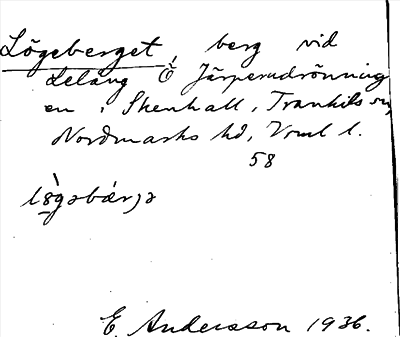 Lögeberget, berg vid
Lelång Ö Järperudrönning
en, Skenhall, Trankils sn,
Nordmarks hd, Vrml l.
58
E. Andersson 1936.